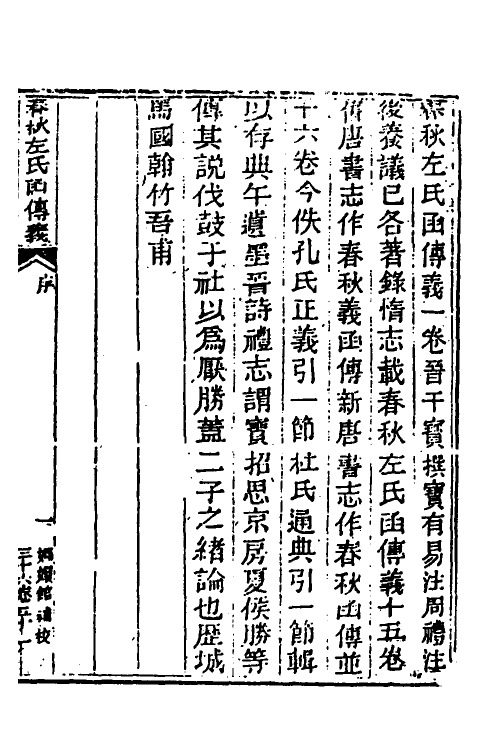 春秋左氏函傳義一卷晉干寶撰寶有易注周禮注
後養議已各著錄隋志載春秋左氏函傳義十五卷
舊唐書志作春秋義函傳新唐書志作春秋函傳並
十六卷今佚孔氏正義引一節杜氏通典引一節輯
以存典午遺墨晉詩禮志謂寶招思京房夏侯勝等
傳其說伐鼓于社以爲厭勝蓋二子之緒論也歷城
馬國翰竹吾甫
春秋左氏函傳義
序
一
嫏嬛館補校